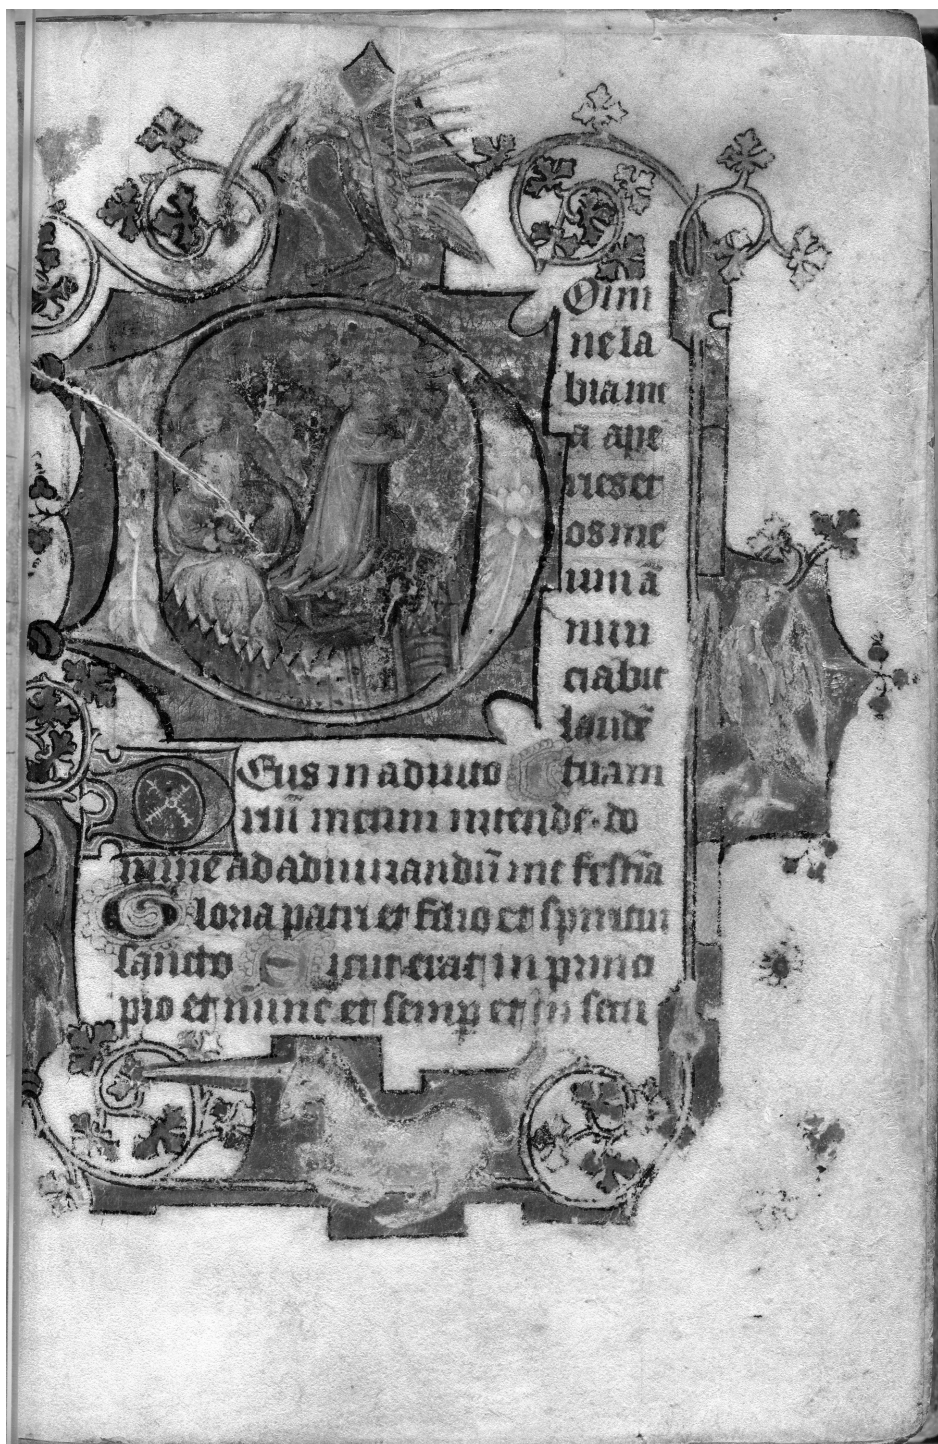 Omi
ne la
bia m
a ape
ries et
os me
um ā
nun
ciabit
laudē
Eus in adiuto tuam
riū meum intende . do
mine ad adiuuandū me festīa
Gloria patri et filio et spiritui
sancto Sicut erat in princi
pio et nunc et semꝑ et in secu